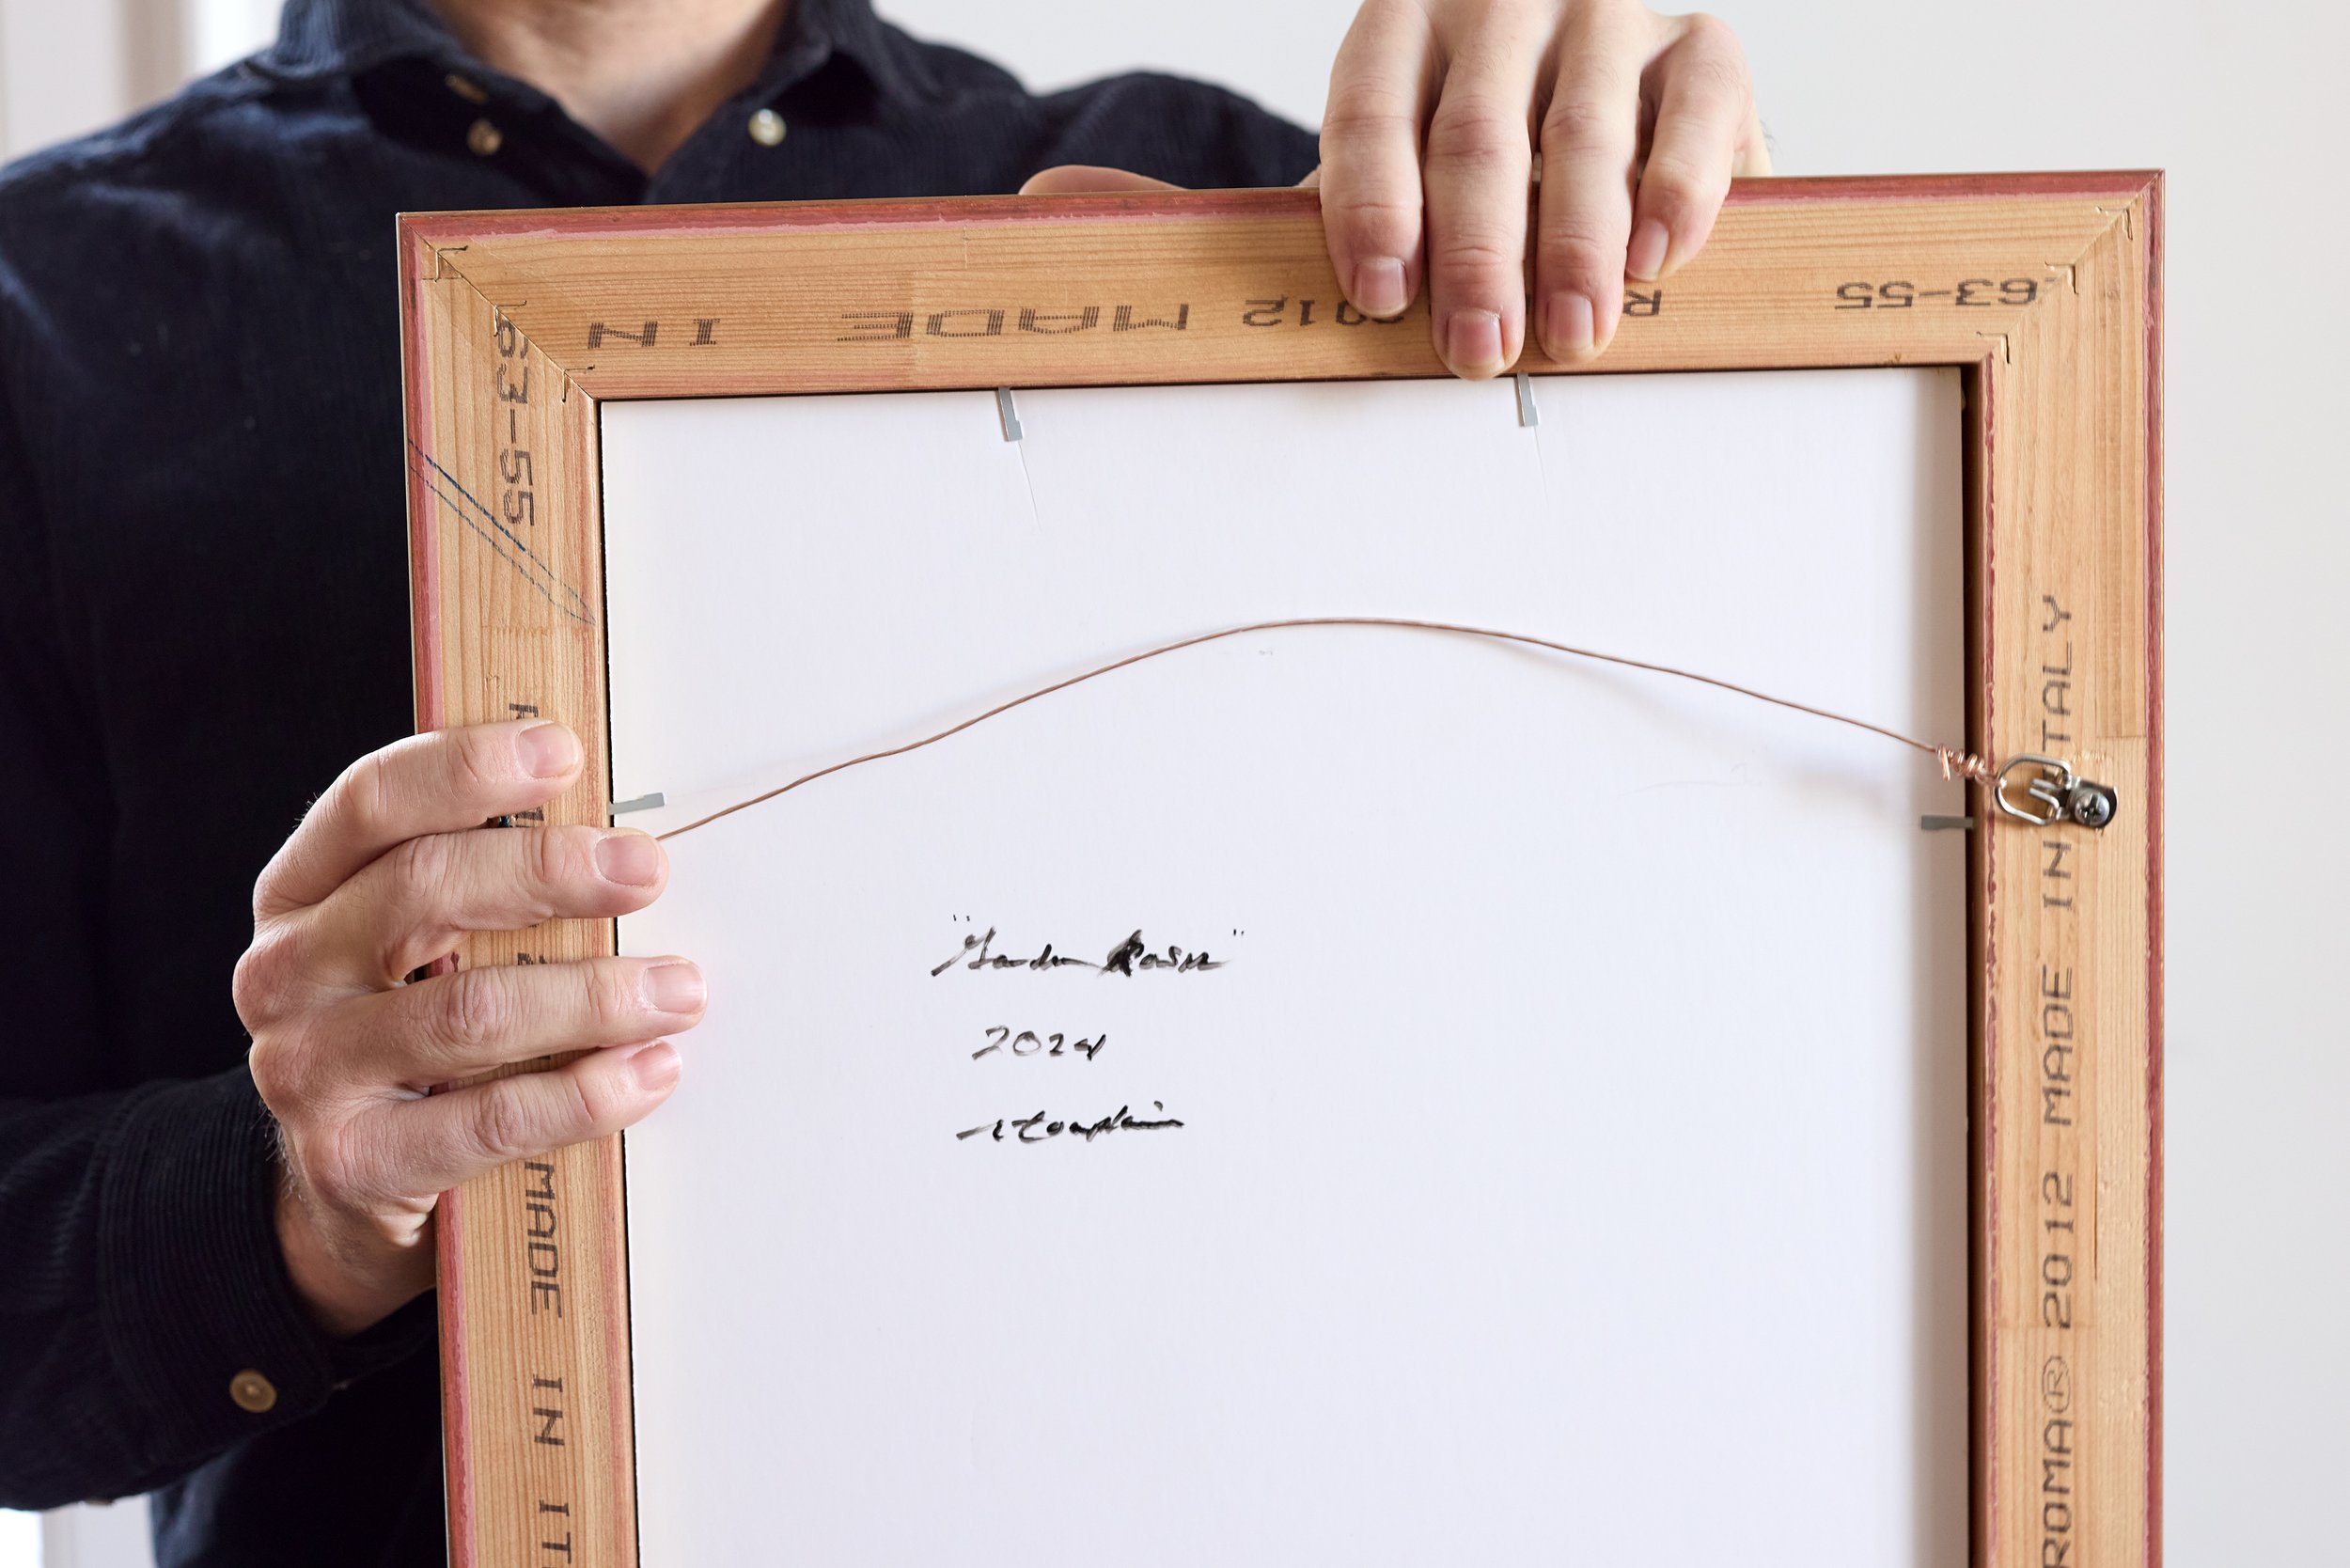 63-55
R 2012 MADE IN
63-55
MADE IN IT
ROMA® 2012 MADE IN ITALY
"Garden Roses"
2024